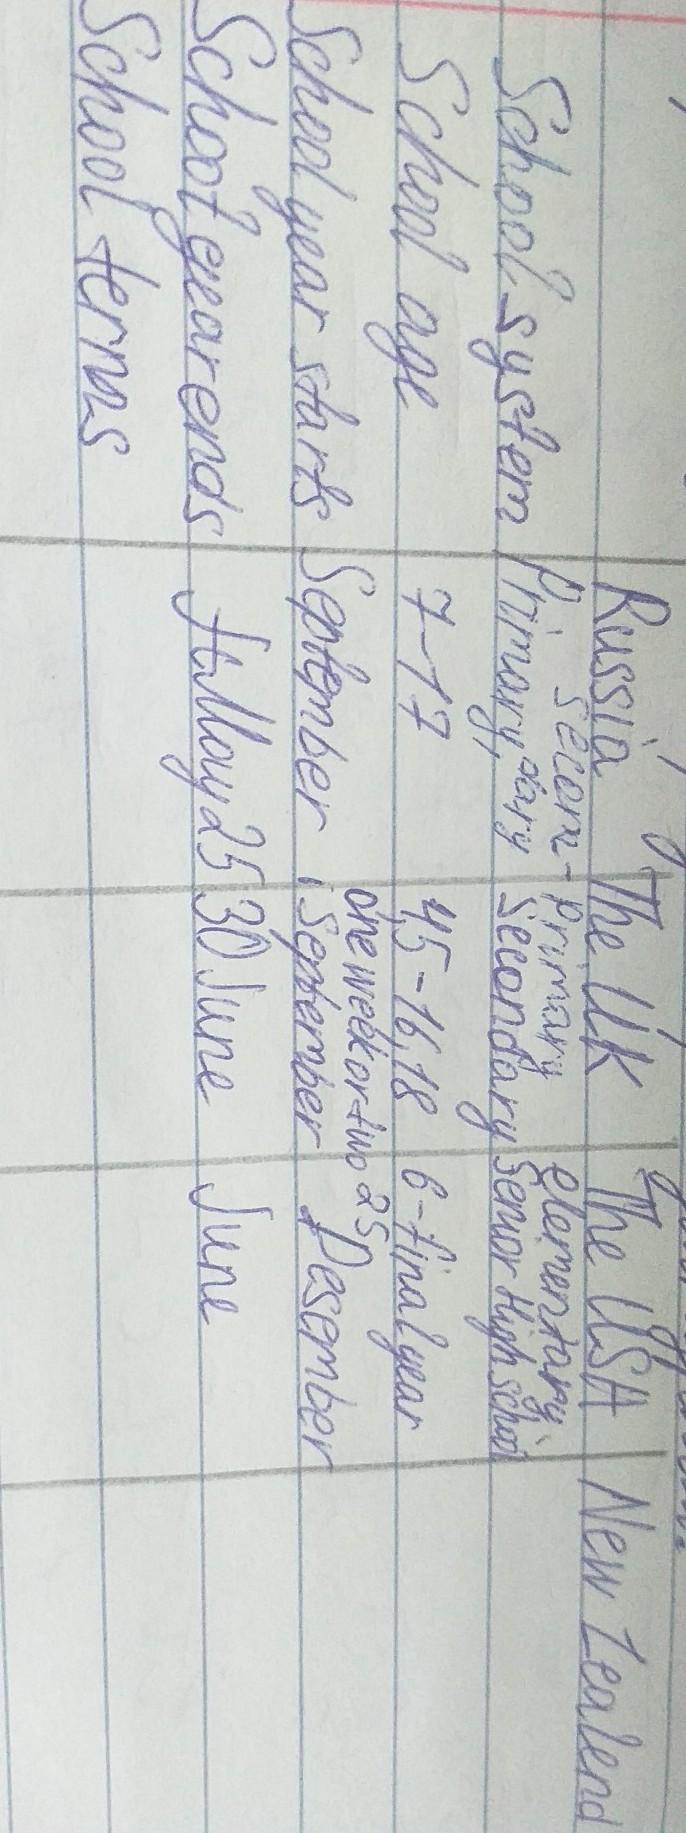 Russia The UK The USA New Zealend
School system Primary, secon-dary primary secondary elementary, Senior High school
School age 7-17 4,5-16,18 6-final year
School year starts September 1 one week or two September 25 Desember
School year ends May 25 30 June June
School terms